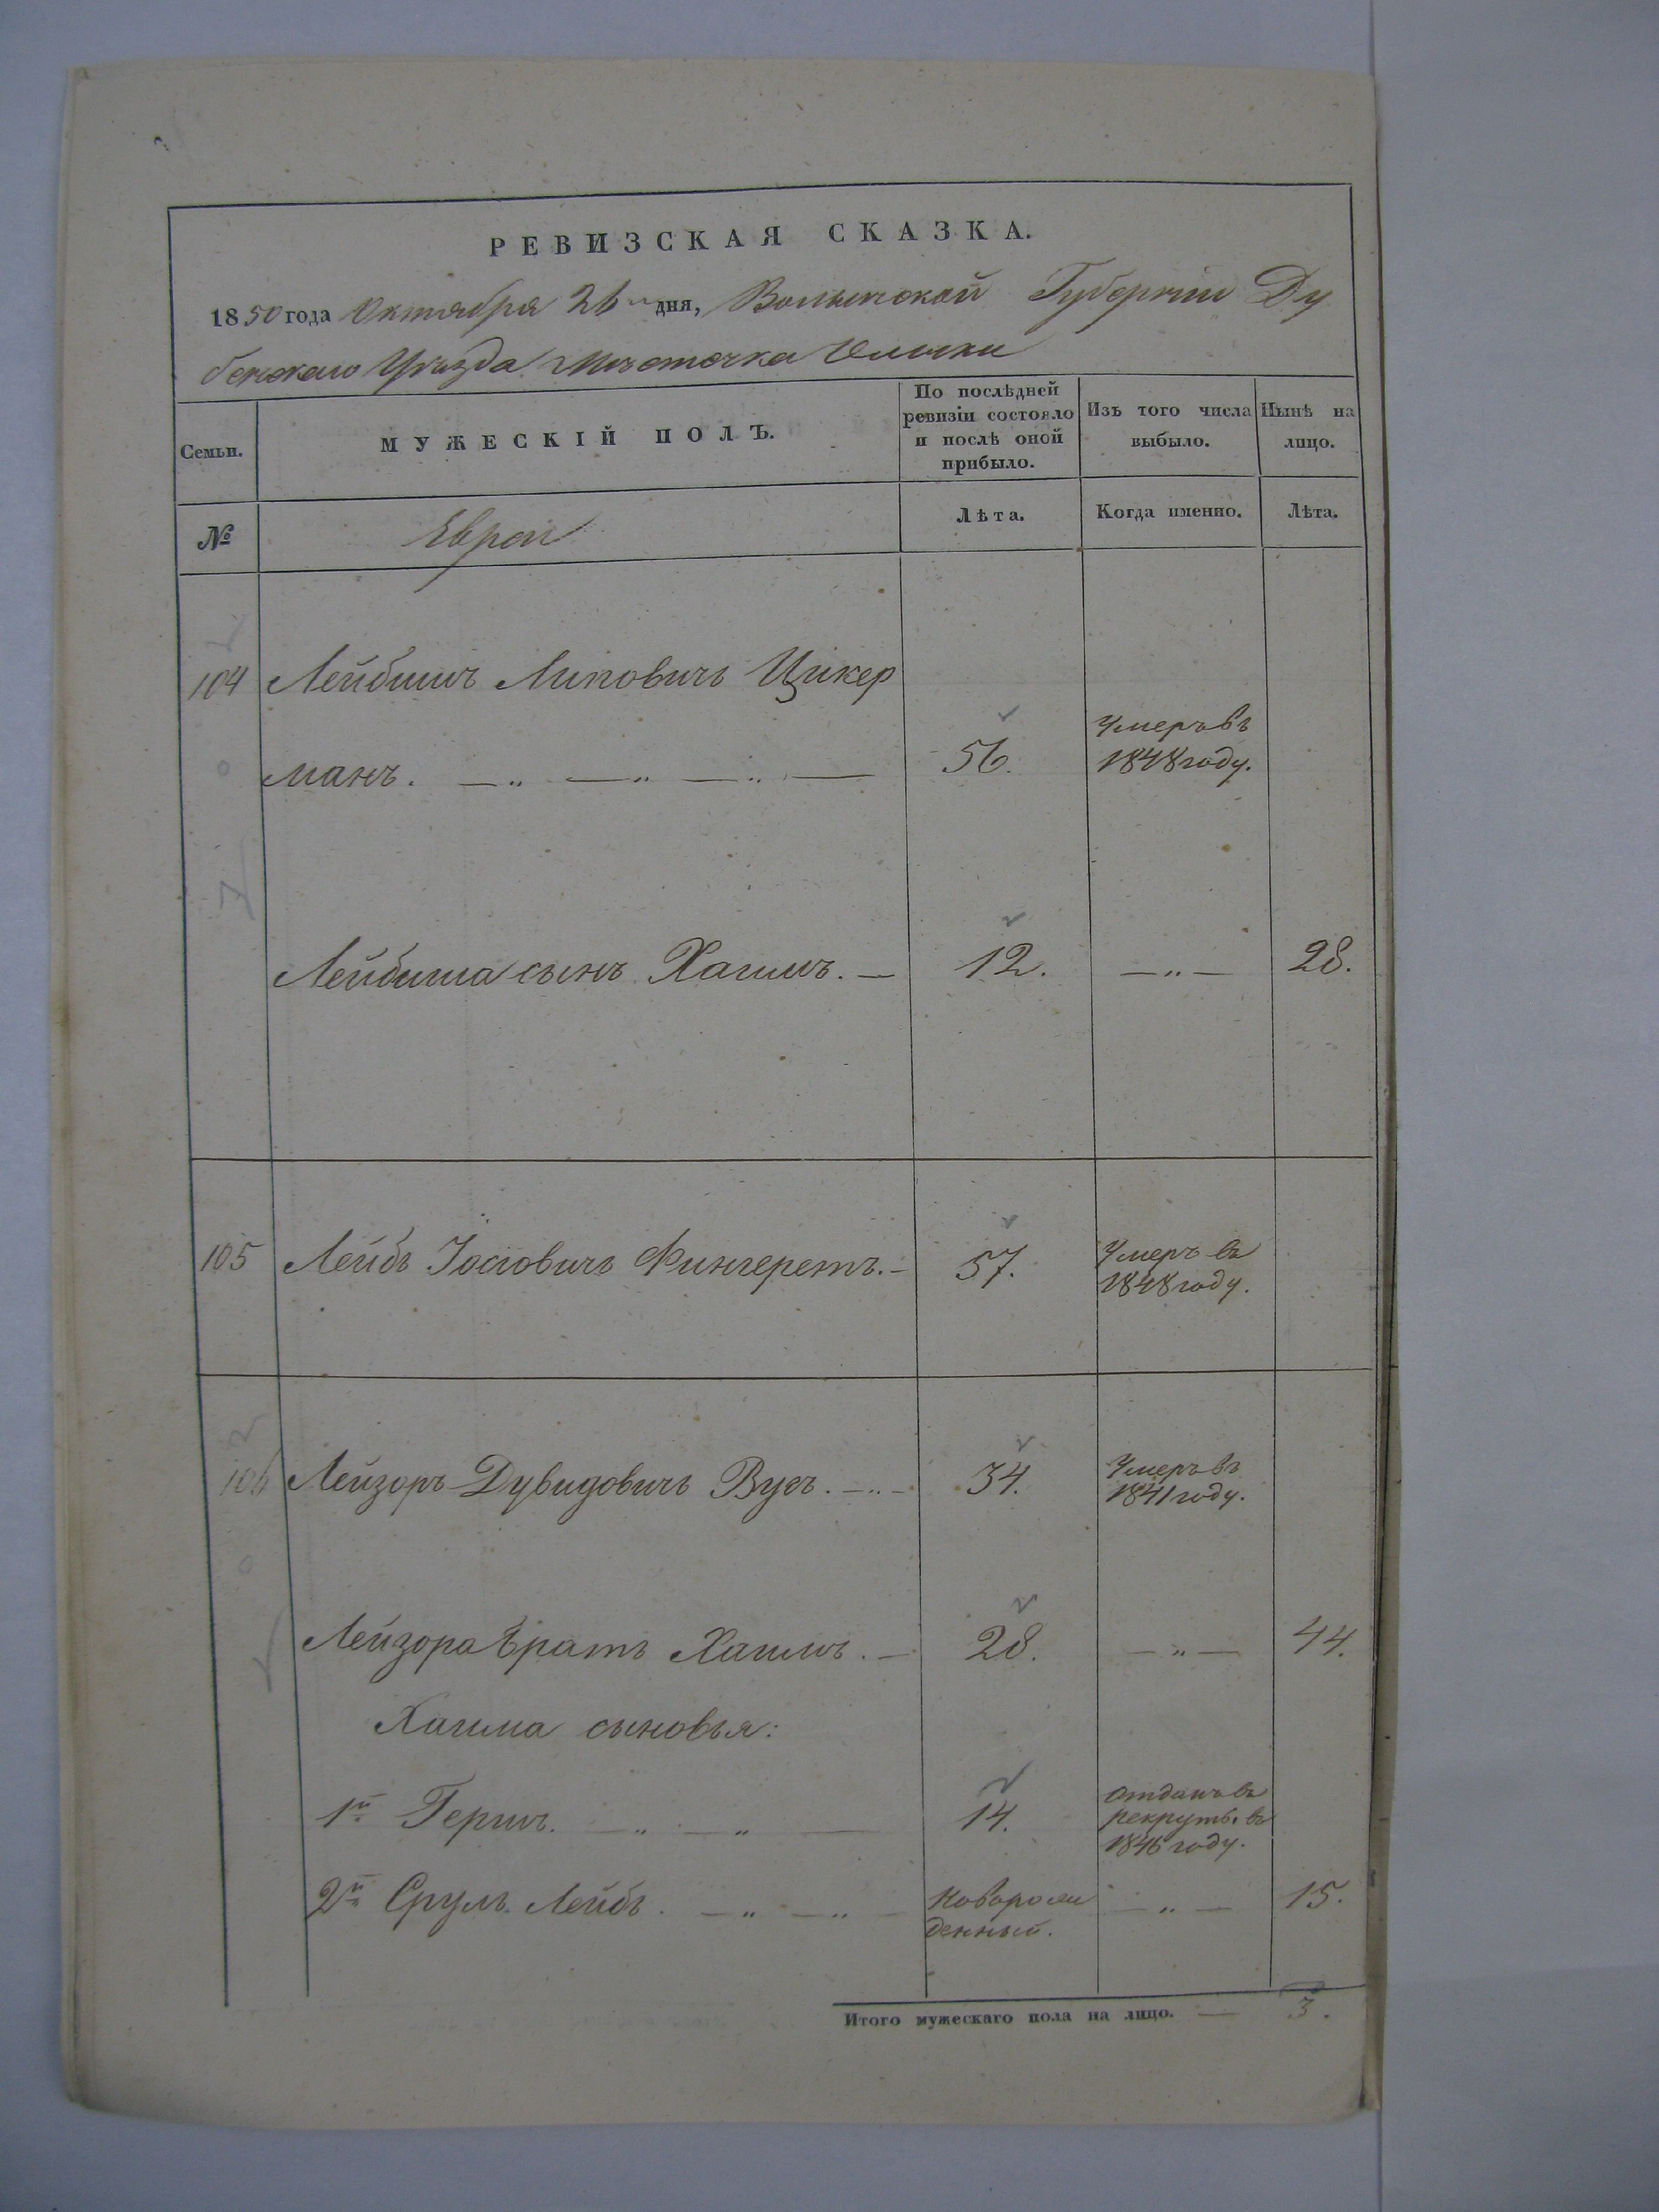 РЕВИЗСКАЯ СКАЗКА.
1850 года Октября 26 дня, Волынской Губерніи Ду
бенскаго Уѣзда Мѣстечка Олыки
Семьи.
МУЖЕСКІЙ ПОЛЪ.
По послѣдней ревизіи состояло и послѣ оной прибыло.
Изъ того числа выбыло.
Нынѣ на лицо.
№
Евреи
Лѣта.
Когда именно.
Лѣта.
104 Лейбишъ Липовичъ Цикер
манъ. — „ — „ — „ — 56. Умеръ въ 1848 году.
Лейбиша сынъ Хаимъ. — 12. — „ — 28.
105 Лейбъ Іосіовичъ Фингеретъ. — 57. Умеръ въ 1848 году.
106 Лейзоръ Дувидовичъ Вусъ. — „ — 34. Умеръ въ 1841 году.
Лейзора братъ Хаимъ. — 28. — „ — 44.
Хаима сыновья:
1й Гершъ. — „ — „ — 14. Отданъ въ рекруты въ 1846 году.
2й Сруль Лейбъ. — „ — „ — Новорож денный. — „ — 15.
Итого мужескаго пола на лицо. — 3.